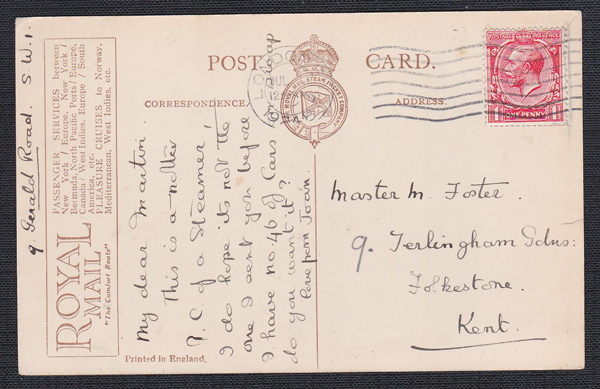 9. Gerald Road. S.W.1.
PASSENGER SERVICES between
New York / Europe, New York /
Bermuda, North Pacific Ports / Europe,
Canada / West Indies, Europe / South
America, etc.
PLEASURE CRUISES to Norway,
Mediterranean, West Indies, etc.
ROYAL
MAIL
"The Comfort Route"
POST CARD.
CORRESPONDENCE.
ADDRESS.
THE ROYAL MAIL STEAM PACKET COMPANY
LONDON
JUL
12
POSTAGE REVENUE
ONE PENNY
My dear Martin
This is a nother
P.C of a Steamer,
I do hope its not the
one I sent you before
I have no 46 of Cars for a swap
do you want it?
Love from Joan.
Master M. Foster.
9. Terlingham Gdns:
Folkestone.
Kent.
Printed in England.